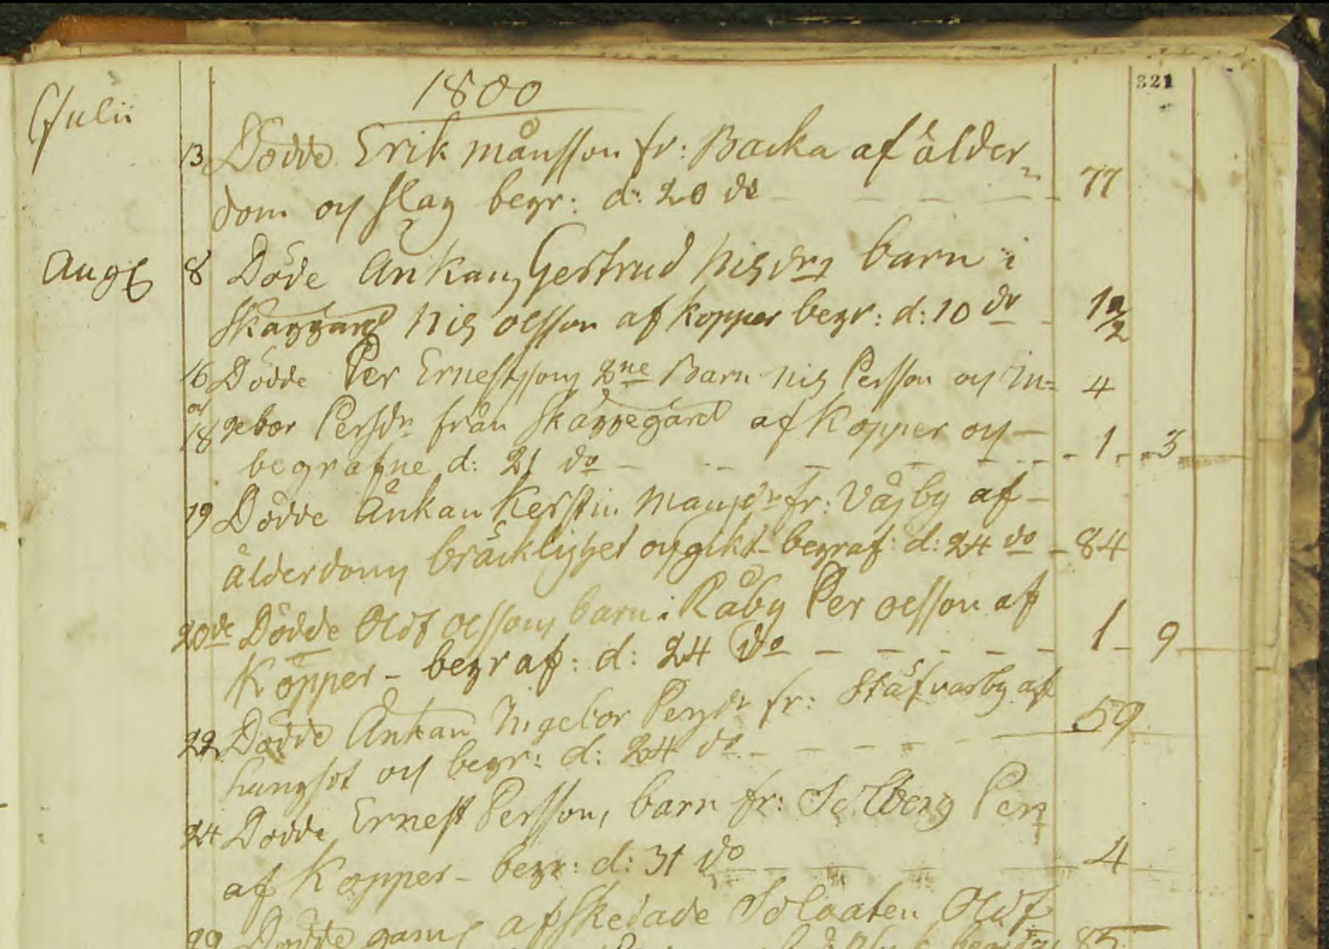 321
1800
Julii
13 Dödde Erik månsson fr: Backa af ålder-
dom och slag begr: d: 20 do - - - - 77
Aug 8 Döde Ankans Gertrud Nisdrs barn i
Skäggard Nis olsson af kopper begr: d: 10 do - 1 1/2
16 Dödde Per Ernestsons 2ne Barn Nis Persson och In= 4
och
18 gebor Persdr från Skäggegård af Kopper och - 1 - 3
begrafne d: 21 do - - -
19 Dödde Änkan Kerstin Mansdr fr: Våsby af -
ålderdoms bräcklighet och gikt - begraf: d: 24 do - 84
20de Dödde Olof olssons barn i Råby Per olsson af
Kopper - begraf: d: 24 do - - - - 1 - 9
22 Dödde Änkan Ingebor Persdr fr: af
lungsot och begr: d: 24 do - - - 59
24 Dödde Ernest Persson, barn fr: Per
af Kopper - begr: d: 31 do - - 4
29 Dödde gamle afskedade Soldaten Olof
85